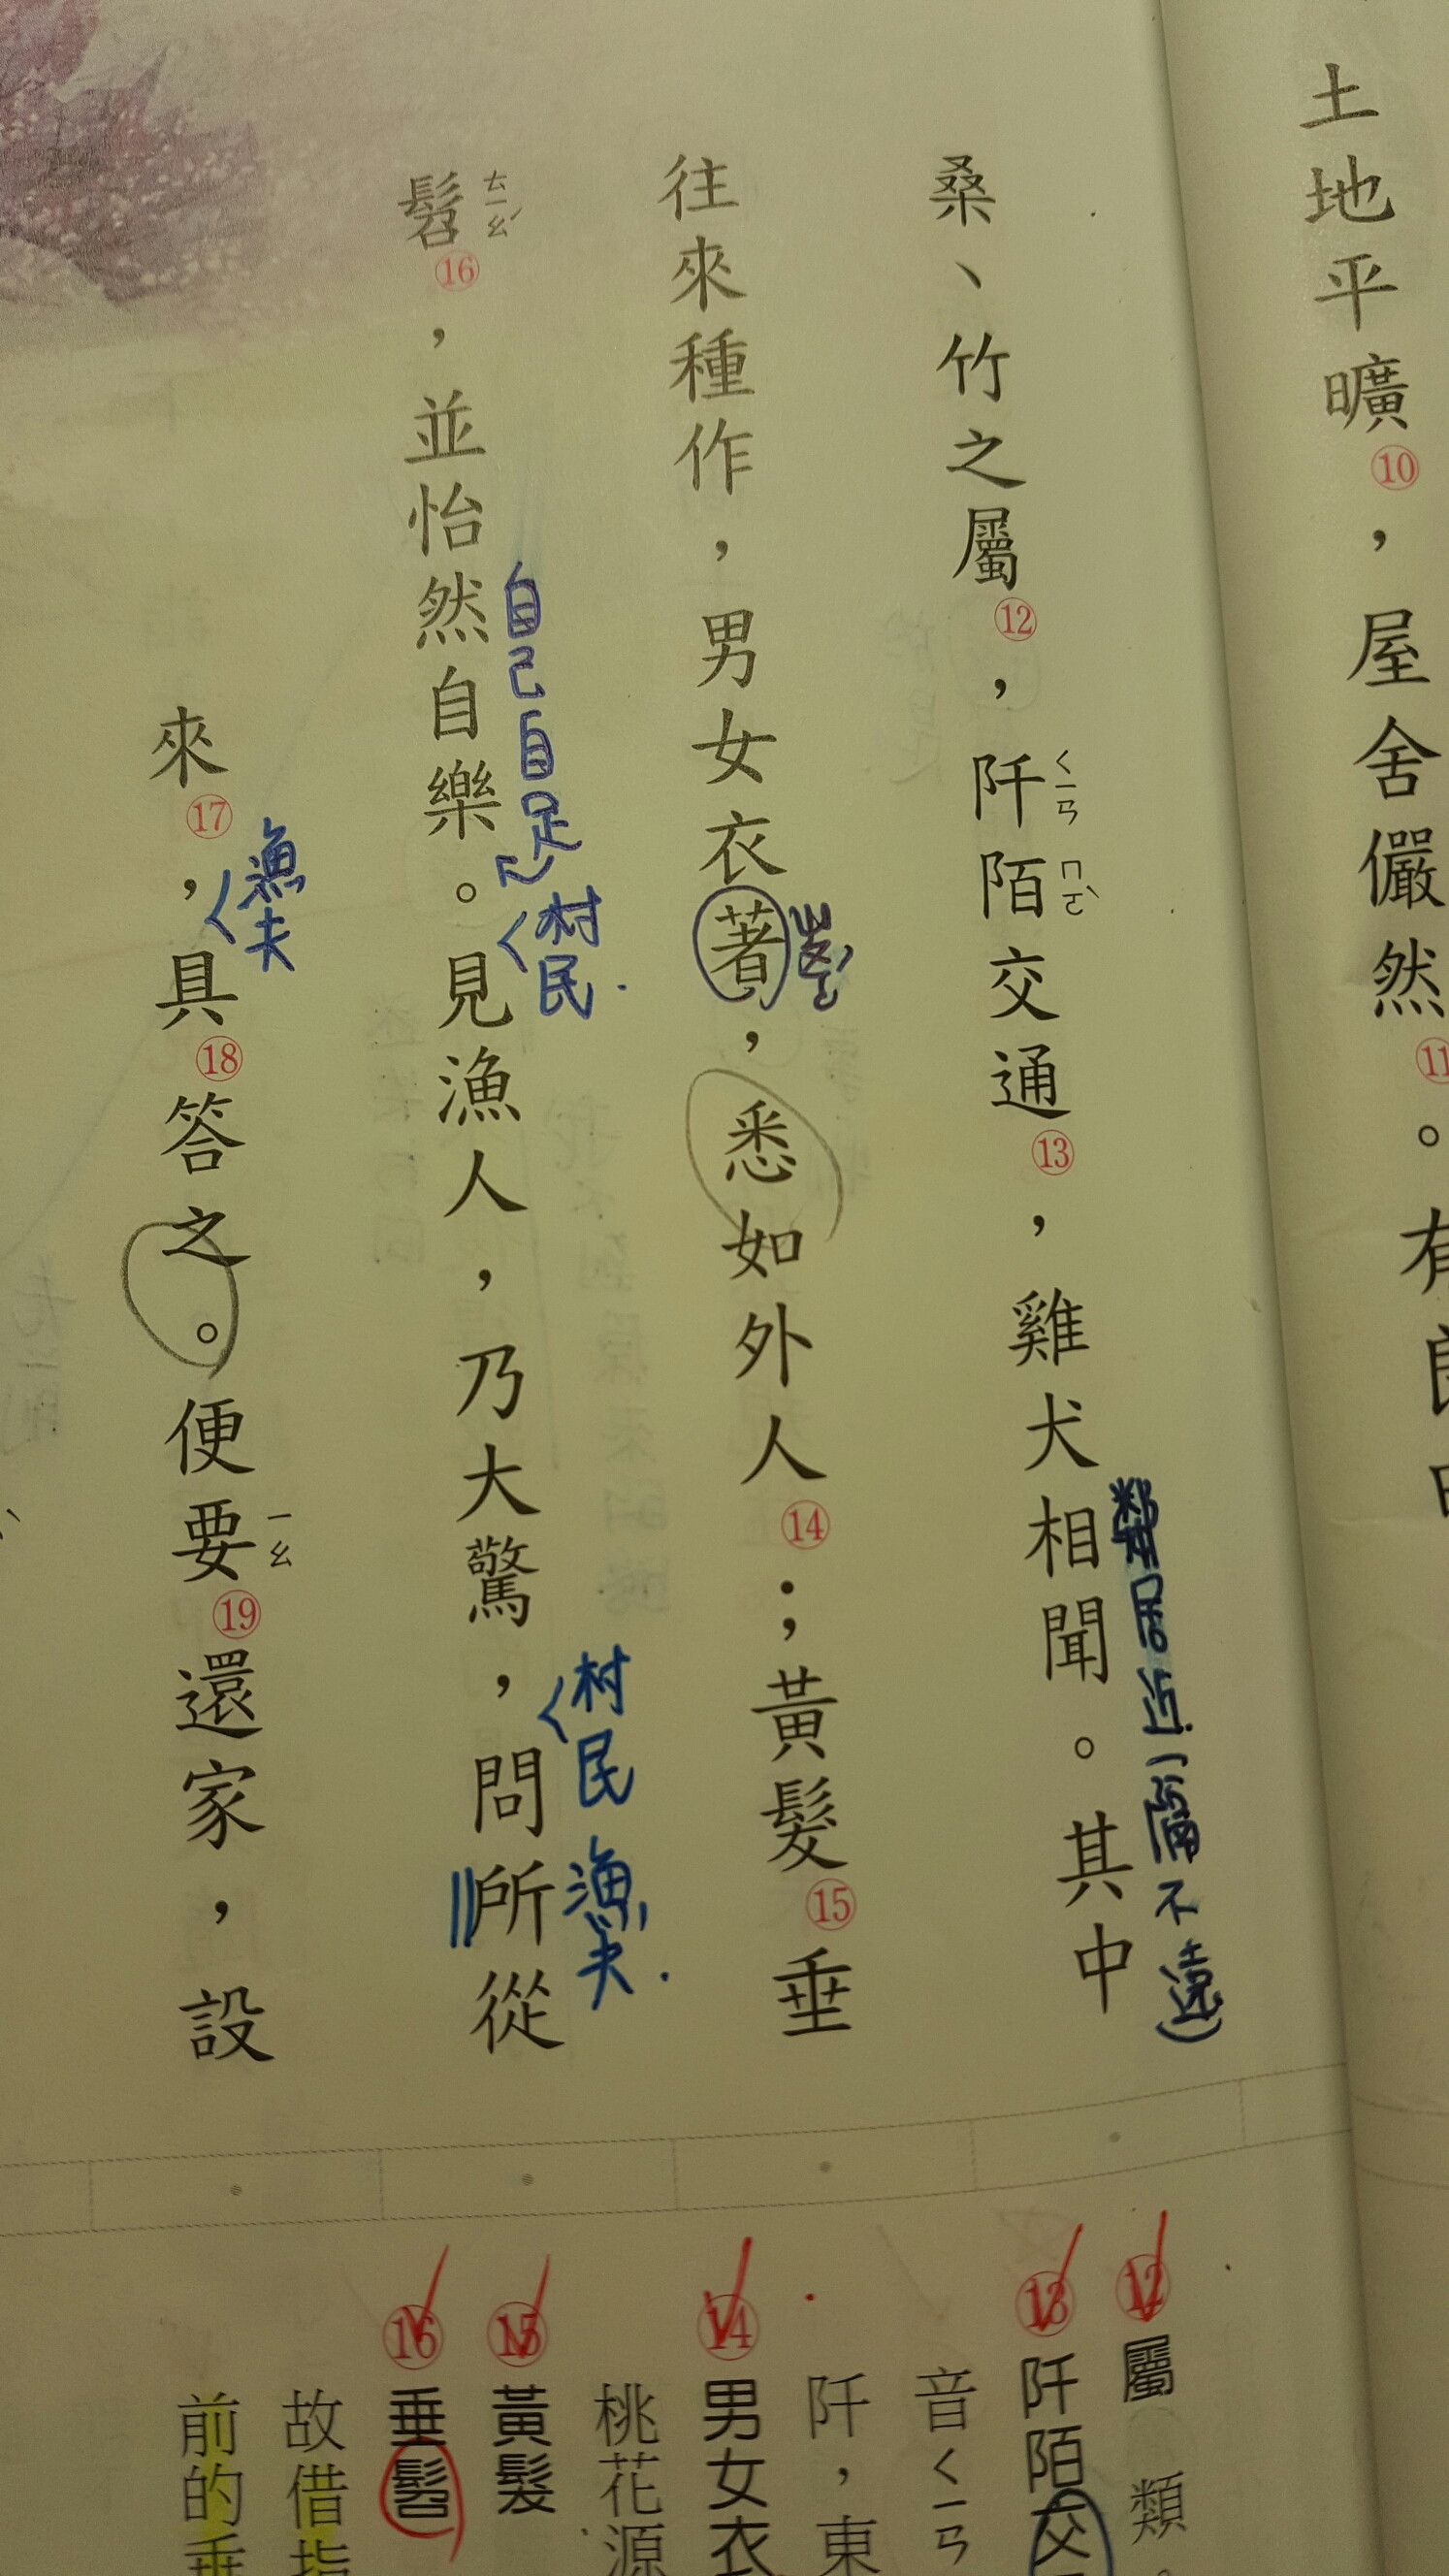 土地平曠⑩，屋舍儼然⑪。有良田
桑、竹之屬⑫，阡陌交通⑬，雞犬相聞。其中
ㄑㄧㄢ ㄇㄛˋ
鄰居近（隔不遠）
往來種作，男女衣著，悉如外人⑭；黃髮⑮垂
髫⑯，並怡然自樂。見漁人，乃大驚，問所從
ㄊㄧㄠˊ
自己自足
村民
村民
漁夫
來⑰，具⑱答之。便要⑲還家，設
漁夫
ㄧㄠ
⑫屬 類。
⑬阡陌交
音ㄑㄧㄢ
阡，東
⑭男女衣
桃花源
⑮黃髮
⑯垂髫
故借指
前的垂